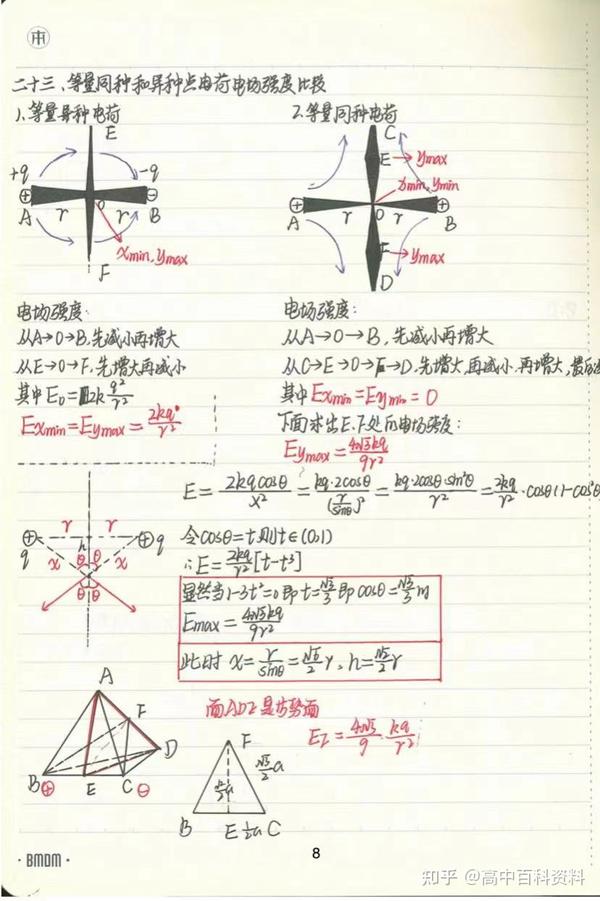 二十三、等量同种和异种点电荷电场强度比较
1、等量异种电荷
E
+q
-q
⊕
⊖
A
r
O
r
B
F
xmin, ymax
2、等量同种电荷
C
E
ymax
xmin, ymin
⊕
⊕
A
r
O
r
B
F
ymax
D
电场强度:
从A→O→B,先减小再增大
从E→O→F,先增大再减小
其中E₀=2k q²/r²
Exmin=Eymax=2kq/r²
电场强度:
从A→O→B,先减小再增大
从C→E→O→F→D,先增大,再减小.再增大,最后
其中Exmin=Eymin=0
下面求出E.F处的电场强度:
Eymax=4√3kq/9r²
E=2kqcosθ/x²=kq·2cosθ/(r/sinθ)²=kq·2cosθ·sin²θ/r²=2kq/r²·cosθ(1-cos²θ
⊕
r
r
⊕
q
h
q
x
θ
θ
x
θ
θ
令cosθ=t则t∈(0,1)
∴E=2kq/r²[t-t³]
显然当1-3t²=0即t=√3/3即cosθ=√3/3时
Emax=4√3kq/9r²
此时 x=r/sinθ=√6/2 r、h=√2/2 r
A
F
D
B⊕
E
C⊖
面ADE是等势面
EE=4√3/9·kq/r²
F
√3/2 a
√2/2 a
B
E
1/2 a
C
8
· BMDM ·
知乎 @高中百科资料